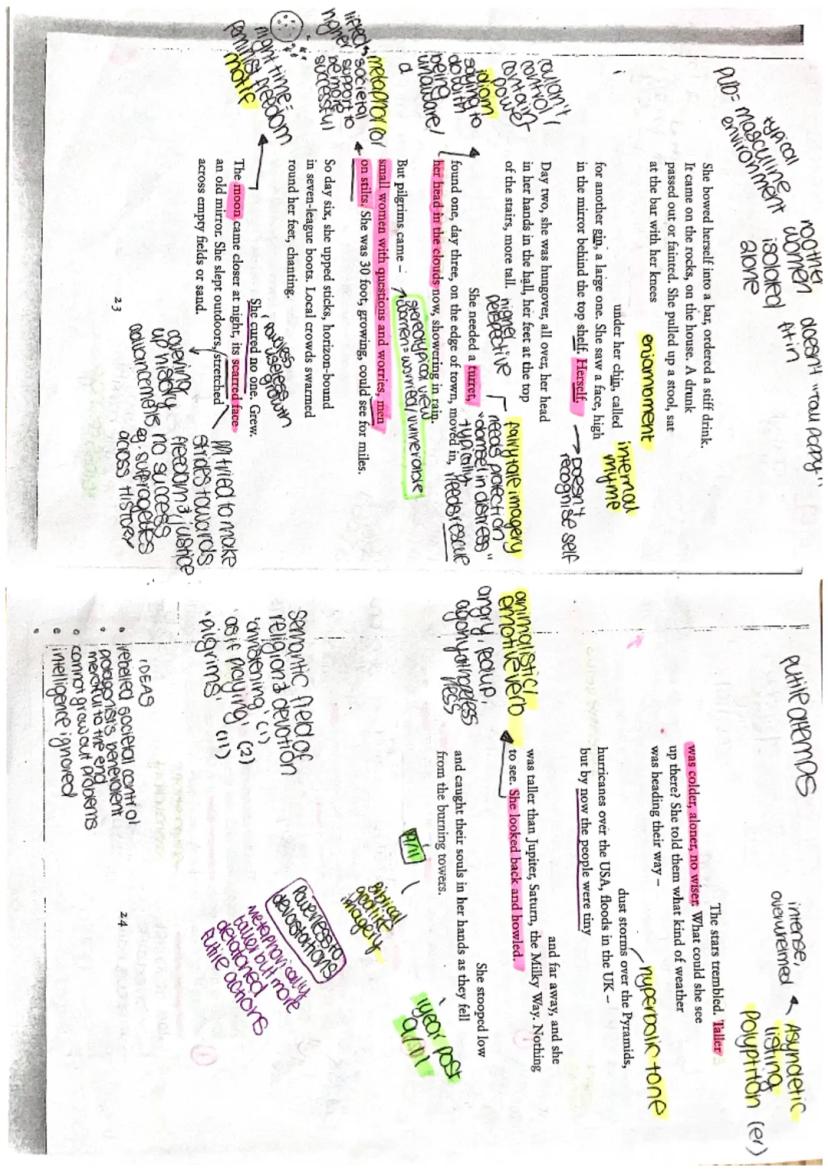 PUD = masculine
typical
environment
no other
women
isolated
alone
doesn't
fit in
"Tall poppy"
She bowed herself into a bar, ordered a stiff drink.
It came on the rocks, on the house. A drunk
passed out or fainted. She pulled up a stool, sat
at the bar with her knees
enjambment
under her chin, called
for another gin, a large one. She saw a face, high
in the mirror behind the top shelf. Herself.
internal
rhyme
→ Doesn't
recognise self
Day two, she was hungover, all over, her head
in her hands in the hall, her feet at the top
of the stairs, more tall.
couldn't
control/
contain
power
higher
perspective
She needed a turret,
found one, day three, on the edge of town, moved in,
her head in the clouds now, showering in rain.
idiom
saying to
do with
being
unaware/
fairytale imagery
needs protection
"damsel in distress"
typically
needs rescue
But pilgrims came –
small women with questions and worries, men
on stilts. She was 30 foot, growing, could see for miles.
stereotypical view
women = worried/vulnerable
metaphor for
societal
support to
be more
successful
So day six, she upped sticks, horizon-bound
in seven-league boots. Local crowds swarmed
round her feet, chanting.
She cured no one. Grew.
The moon came closer at night, its scarred face
an old mirror. She slept outdoors, stretched
across empty fields or sand.
night time =
feminist freedom
motif
covering
up history
advancements
tried to make
strides towards
freedom & justice
no success
eg suffragettes
across history
23
futile attempts
intense,
overwhelmed
Asyndetic
listing
polyptoton (er)
The stars trembled. Taller
was colder, aloner, no wiser. What could she see
up there? She told them what kind of weather
was heading their way –
dust storms over the Pyramids,
hurricanes over the USA, floods in the UK –
but by now the people were tiny
hyperbolic tone
and far away, and she
was taller than Jupiter, Saturn, the Milky Way. Nothing
to see. She looked back and howled.
animalistic/
emotive verb
angry, fed up,
agony
She stooped low
and caught their souls in her hands as they fell
from the burning towers.
9/11
1 year post
9/11/01
Biblical
godlike
imagery
Powerless to
devastations
metaphorically
taller but more
futile actions
semantic field of
religion & devotion
'christening' (1)
'as if praying' (2)
'pilgrims' (11)
IDEAS
• rebelled societal control
• protagonists benevolent
merciful to the end
• cannot grow out problems
• intelligence ignored
24